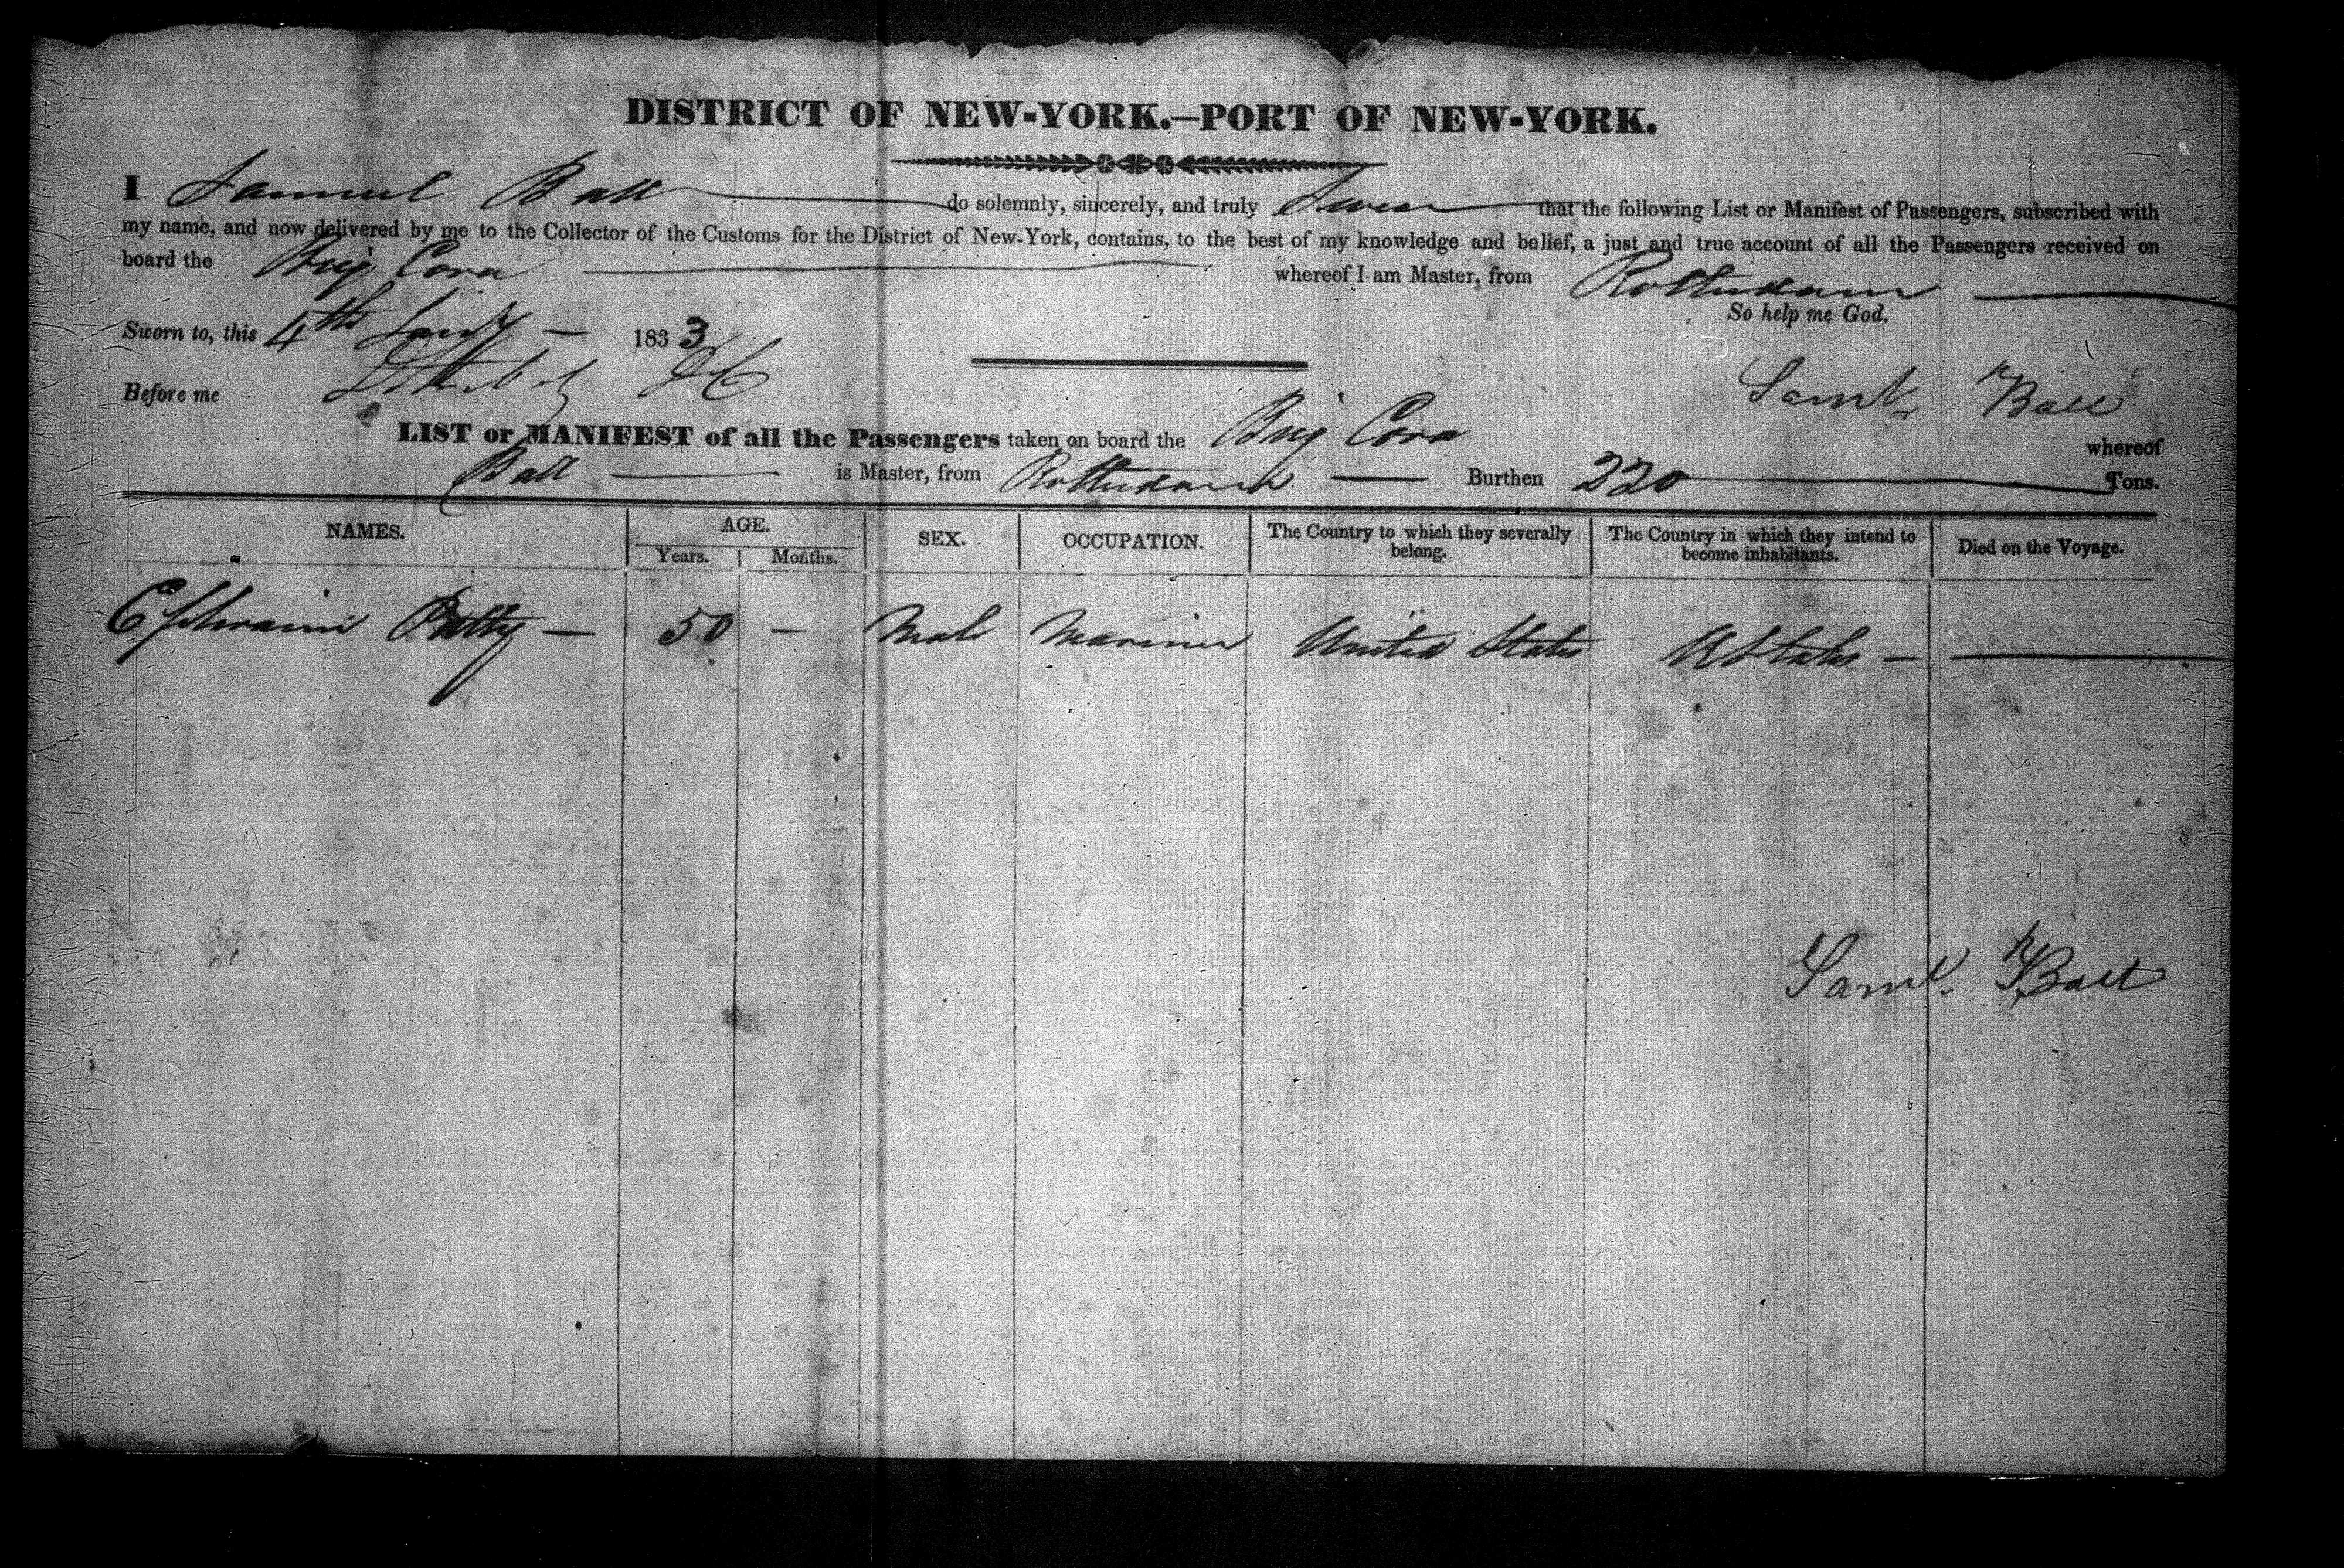 DISTRICT OF NEW-YORK.—PORT OF NEW-YORK.
I Samuel Ball do solemnly, sincerely, and truly Swear that the following List or Manifest of Passengers, subscribed with
my name, and now delivered by me to the Collector of the Customs for the District of New-York, contains, to the best of my knowledge and belief, a just and true account of all the Passengers received on
board the Brig Cora whereof I am Master, from Rotterdam
So help me God.
Sworn to, this 4th Jany — 1833
Before me DC Saml Ball
LIST or MANIFEST of all the Passengers taken on board the Brig Cora whereof
Ball is Master, from Rotterdam — Burthen 220 Tons.
NAMES. AGE. SEX. OCCUPATION. The Country to which they severally belong. The Country in which they intend to become inhabitants. Died on the Voyage.
Years. Months.
Ephraim Patty — 50 — Male Mariner United States U States —
Saml. Ball